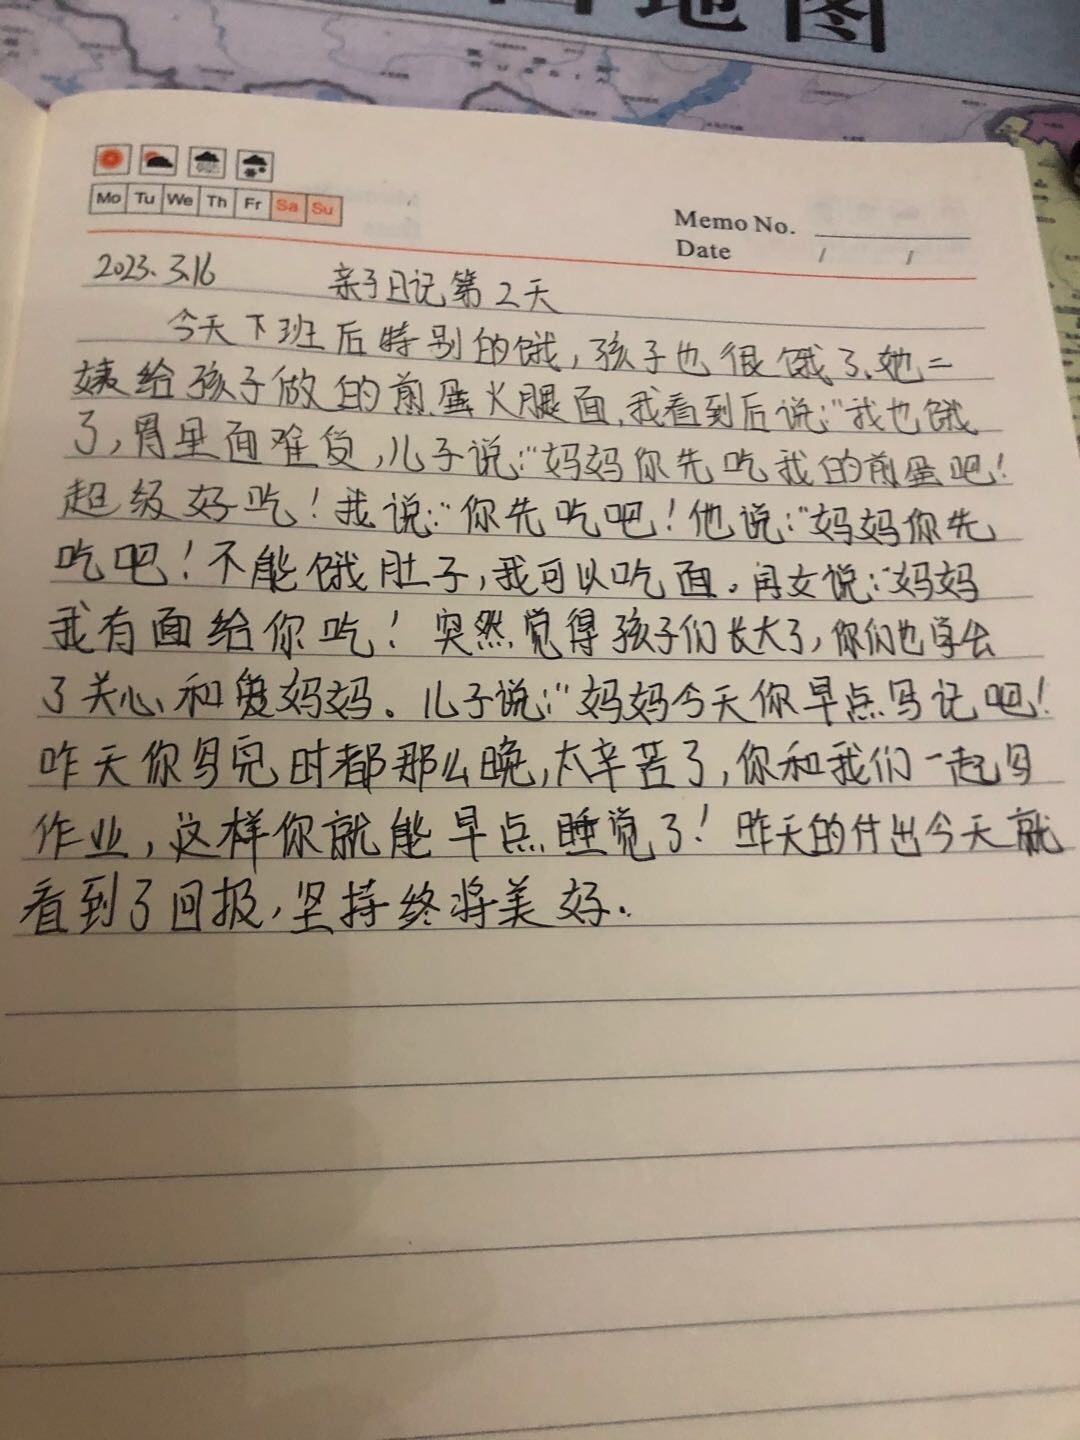 地图
Mo Tu We Th Fr Sa Su
Memo No.
Date / /
2023.3.16 亲子日记第2天
今天下班后特别的饿,孩子也很饿了、她二
姨给孩子做的煎蛋火腿面,我看到后说:"我也饿
了,胃里面难负,儿子说:"妈妈你先吃我的煎蛋吧!
超级好吃!我说:"你先吃吧!他说:"妈妈你先
吃吧!不能饿肚子,我可以吃面。闺女说:"妈妈
我有面给你吃!突然觉得孩子们长大了,你们也学会
了关心和爱妈妈。儿子说:"妈妈今天你早点写记吧!
昨天你写完时都那么晚,太辛苦了,你和我们一起写
作业,这样你就能早点睡觉了!昨天的付出今天就
看到了回报,坚持终将美好.